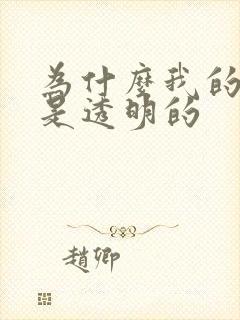 為什麼我的
是透明的
趙卿